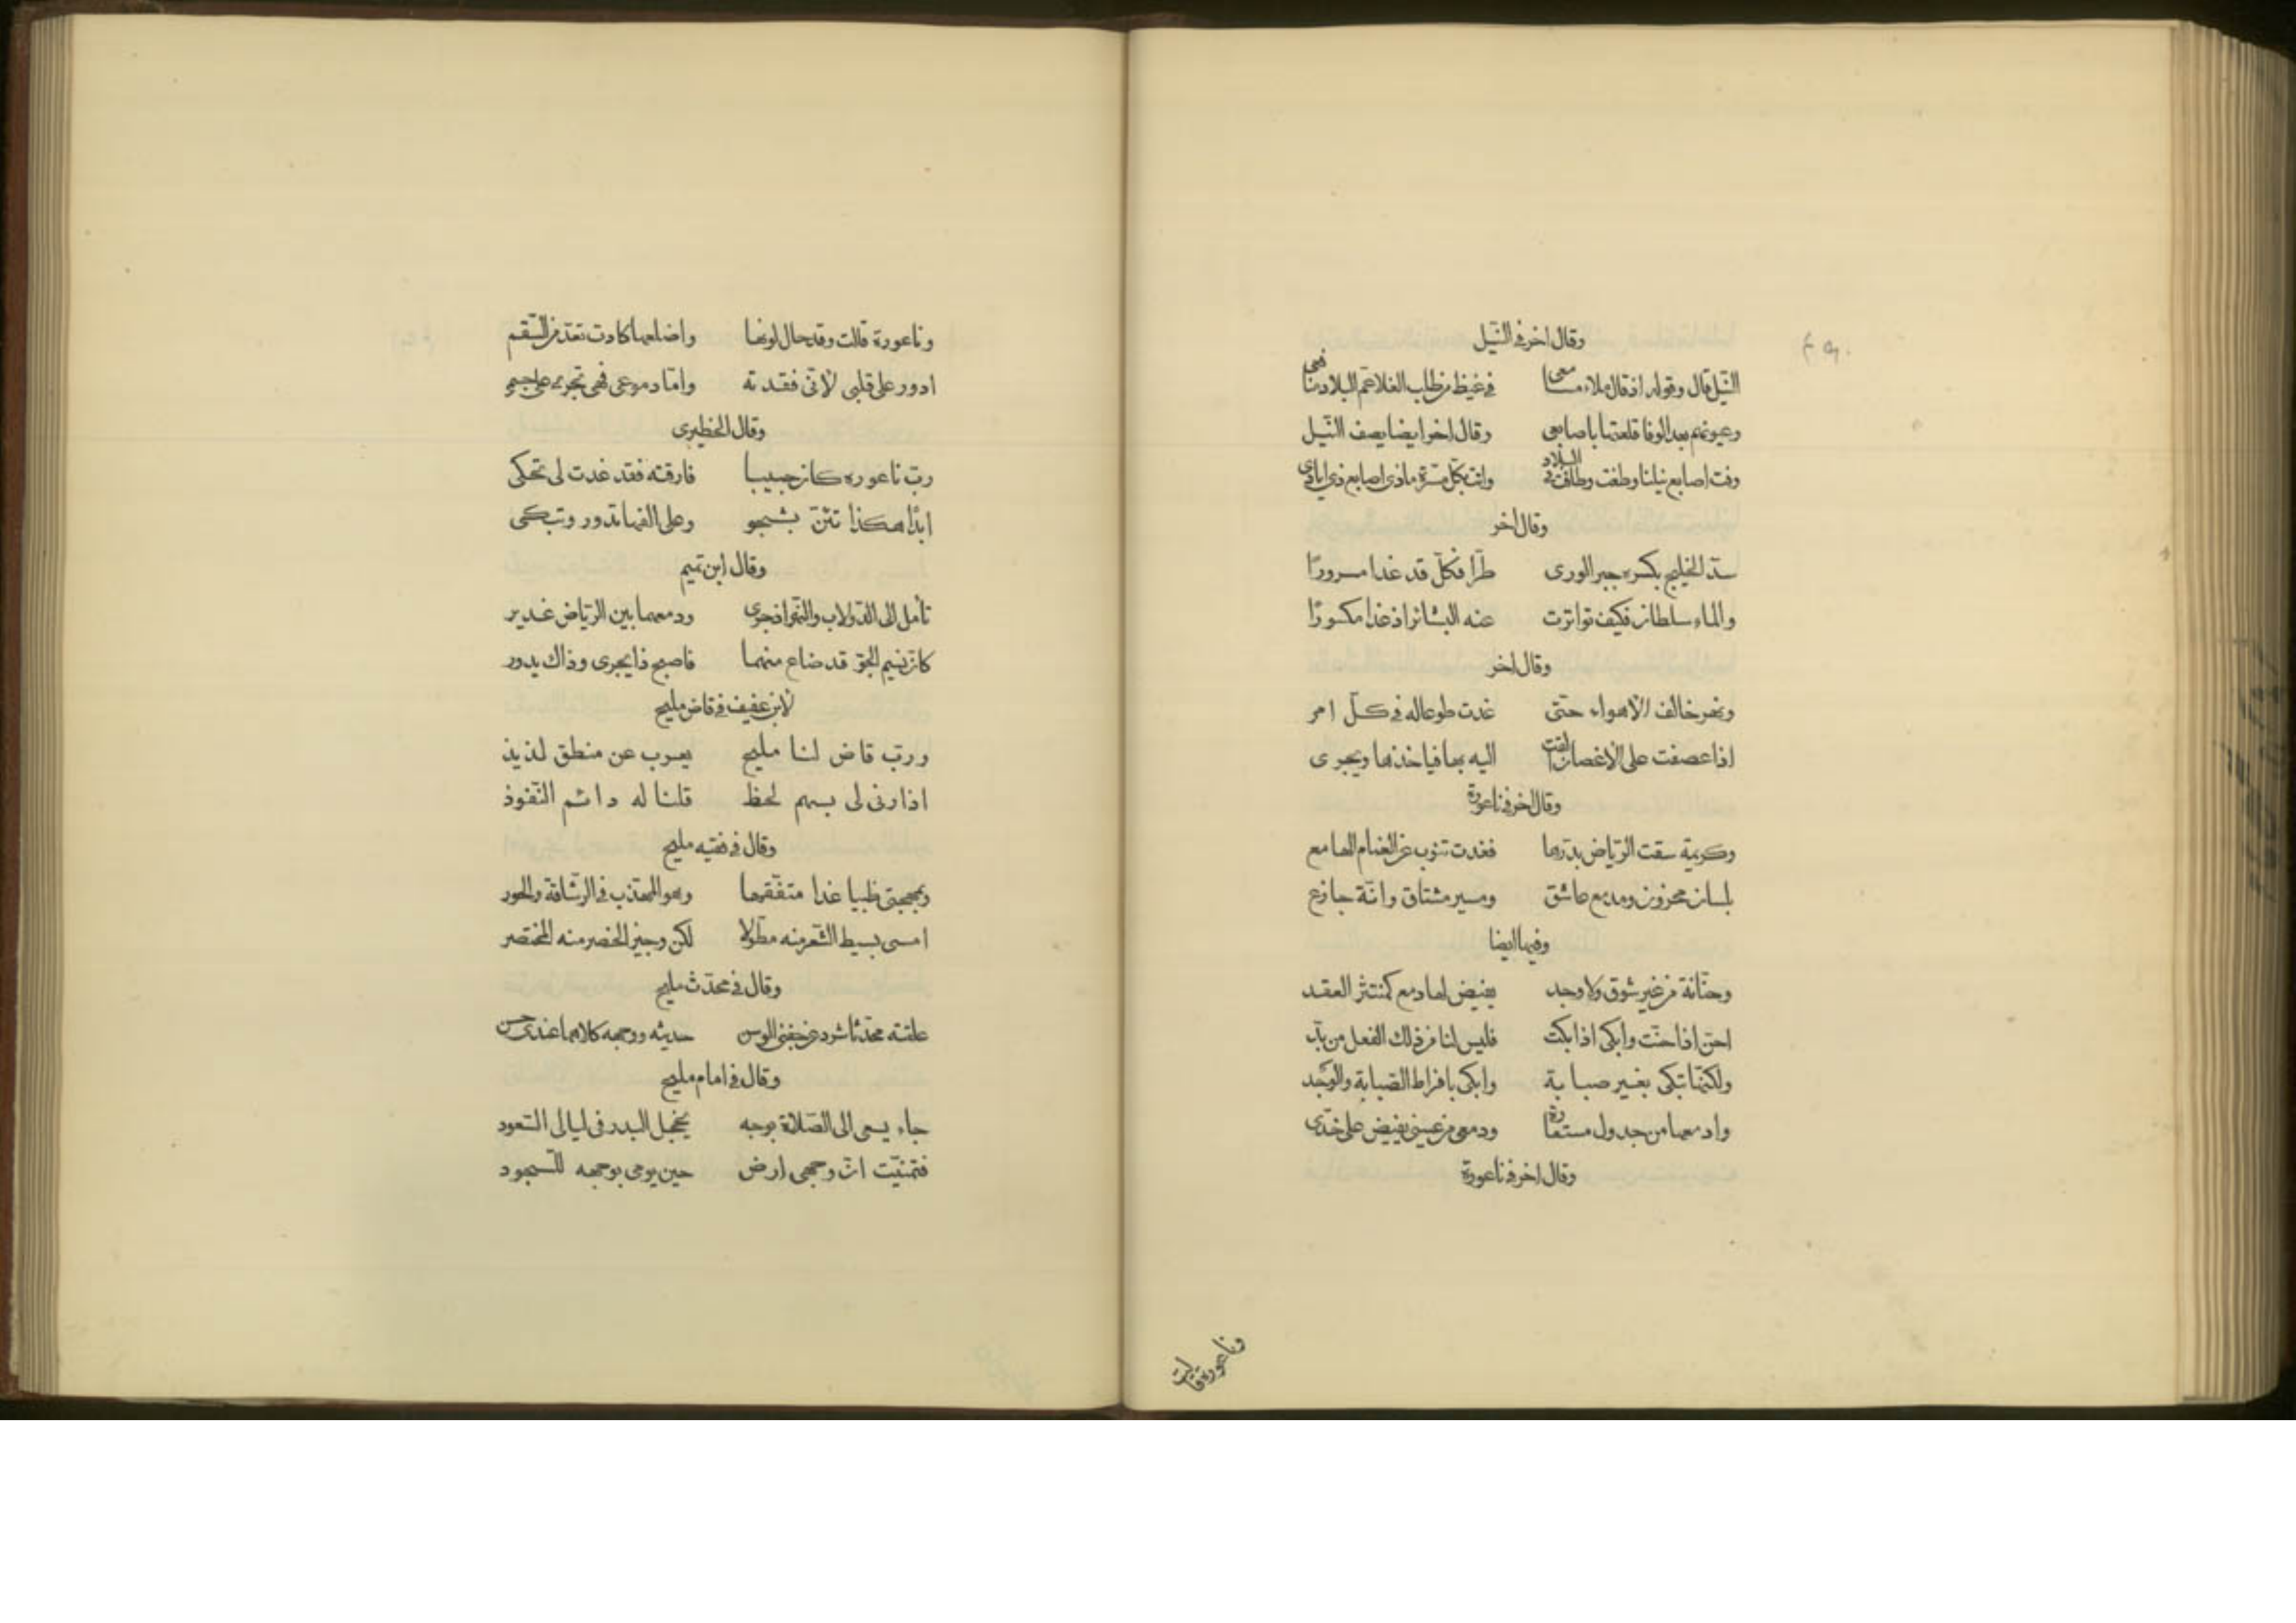 وقال اخر في النّيل
النّيل قال وقوله اذ قال ملاء مسامعى في غيظ من طلب الغلا عمّ البلاد منافعى
وعيونهم بعد الوفا قلعتها باصابعى وقال اخر ايضا يصف النّيل
وفت اصابع نيلنا وطفت وطافت في البلاد واتت بكلّ مسرّة ماذى اصابع ذى ايادى
وقال اخر
سدّ الخليج بكسره جبر الورى طرّا فكلّ قد غدا مسرورًا
والماء سلطان فكيف تواترت عنه البشائر اذ غدا مكسورًا
وقال اخر
ونهر خالف الاهواء حتى غدت طوعا له في كلّ امر
اذا عصفت على الاغصان القت اليه بها فياخذها ويجرى
وقال اخر في ناعورة
وكريمة سقت الرّياض بدرّها فغدت تنوب عن الغمام الهامع
بلسان محزون ومدمع عاشق ومسير مشتاق وانّة جازع
وفيها ايضا
وحنّانة من غير شوق ولا وجد يفيض لها دمع كمنتثر العقد
احنّ اذا حنّت وابكى اذا بكت فليس لنا من ذلك الفعل من بدّ
ولكنّها تبكى بغير صبابة وابكى بافراط الصّبابة والوجد
وادمعها من جدول مستعارة ودمعى من عينى يفيض على خدّى
وقال اخر في ناعورة
وناعورة قالت
وناعورة قالت وقد حال لونها واضلعها كادت تعدّ من السّقم
ادور على قلبى لانّى فقدته وامّا دموعى فهى تجرى على جسمى
وقال الخطيرى
ربّ ناعوره كان حبيبا فارقته فقد غدت لى تحكى
ابدًا هكذا تئنّ بشجو وعلى الفها تدور وتبكى
وقال ابن تميم
تأمل الى الدّولاب والنّهر اذ جرى ودمعهما بين الرّياض غدير
كان نسيم الجوّ قد ضاع منهما فاصبح ذا يجرى وذاك يدور
لابن عفيف في قاض مليح
وربّ قاض لنا مليح يعرب عن منطق لذيذ
اذا رنى لى بسهم لحظ قلنا له دائم النّفوذ
وقال في فقيه مليح
وبمهجتى ظبيا غدا متفقّها وهو المهذّب في الرّشاقة والحور
امسى بسيط الشّعر منه مطوّلا لكن وجيز الخصر منه المختصر
وقال في محدّث مليح
علقته محدّثا شرد عن جفنى الوسن حديثه ووجهه كلاهما عندى حسن
وقال في امام مليح
جاء يسعى الى الصّلاة بوجه يخجل البدر في ليالى السّعود
فتمنيّت انّ وجهى ارض حين يومى بوجهه للسّجود